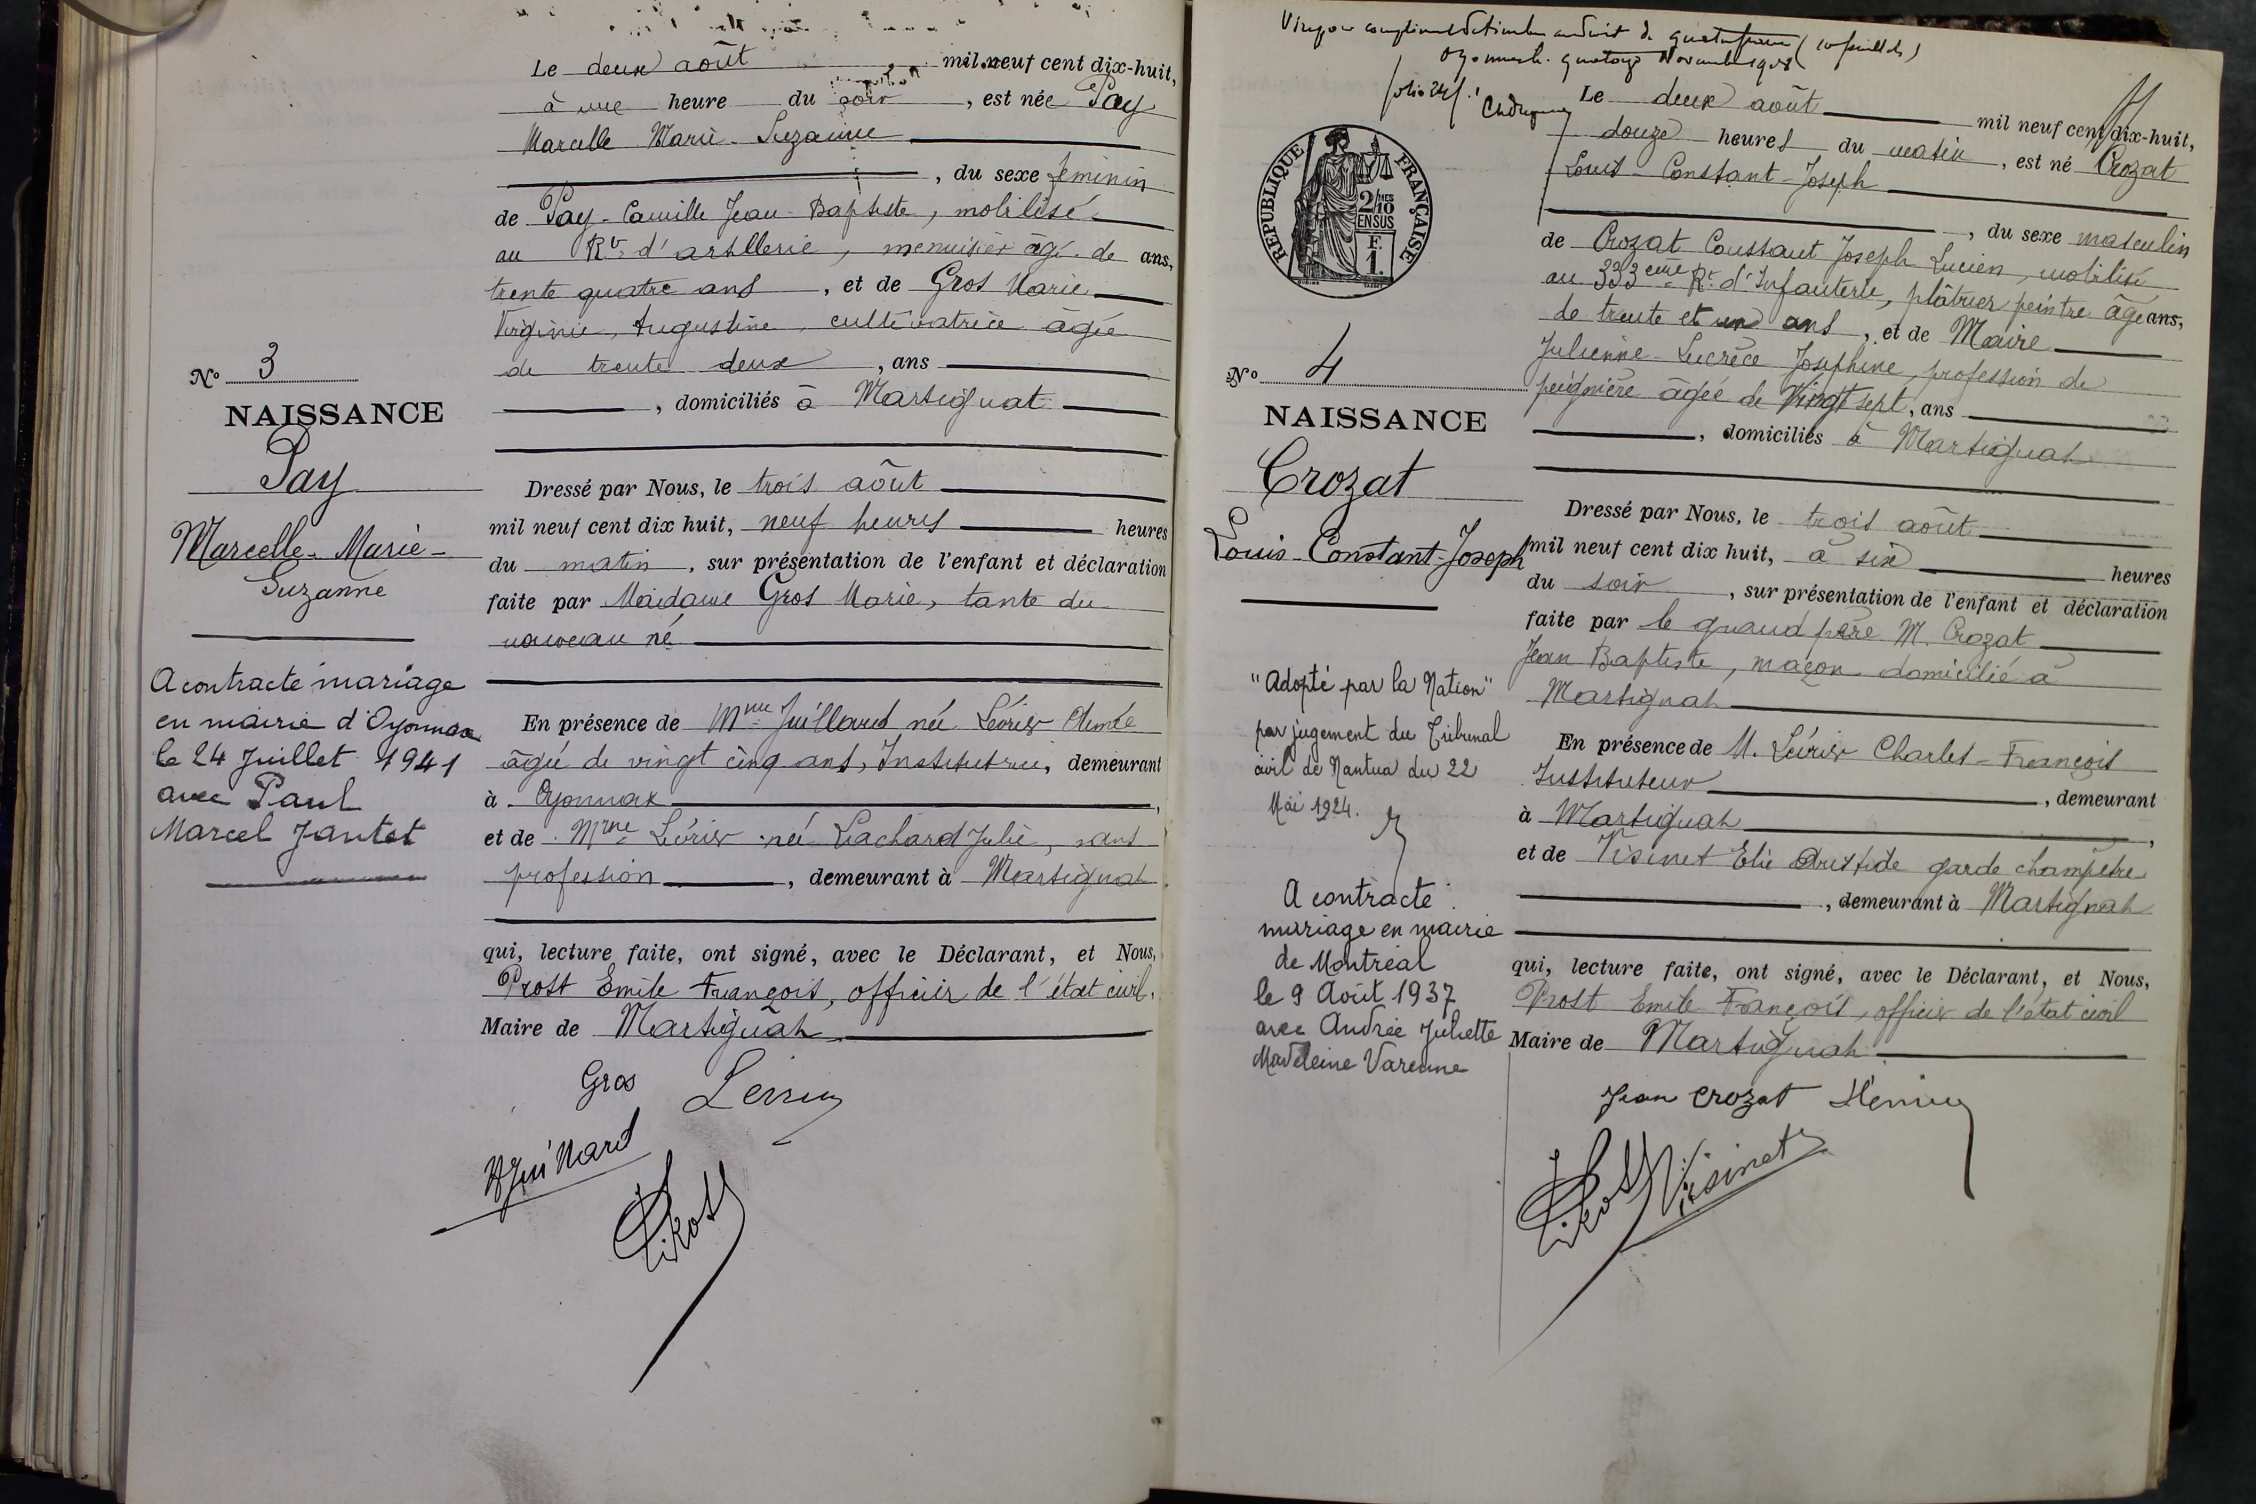 Le deux août mil neuf cent dix-huit,
à une heure du soir, est née Pay
Marcelle Marie-Suzanne
, du sexe féminin
de Pay-Camille Jean-Baptiste, mobilisé
au Rt d'artillerie, menuisier âgé de ans,
trente quatre ans, et de Gros Marie
Virginie, Augustine, cultivatrice âgée
de trente deux, ans
, domiciliés à Martignat
Dressé par Nous, le trois août
mil neuf cent dix huit, neuf heures heures
du matin, sur présentation de l'enfant et déclaration
faite par Madame Gros Marie, tante du
nouveau né
En présence de Mme Juillard née Léviér Aimée
âgée de vingt cinq ans, Institutrice, demeurant
à Oyonnax,
et de Mme née Lachard Julie, sans
profession, demeurant à Martignat
qui, lecture faite, ont signé, avec le Déclarant, et Nous,
Prost Emile François, officier de l'état civil,
Maire de Martignat
Gros
AJuillard
Prost
No 3
NAISSANCE
Pay
Marcelle-Marie-
Suzanne
A contracté mariage
en mairie d'Oyonnax
le 24 Juillet 1941
avec Paul
Marcel Jantet
folio 24
RÉPUBLIQUE FRANÇAISE
2/10 MES
EN SUS
F.
1.
Le deux août mil neuf cent dix-huit,
douze heures du matin, est né Crozat
Louis-Constant-Joseph
, du sexe masculin
de Crozat Constant Joseph Lucien, mobilisé
au 333eme Rt d'Infanterie, plâtrier peintre âgé ans,
de trente et un ans, et de Maire
Julienne-Lucrèce Joséphine, profession de
peignière âgée de Vingt sept, ans
, domiciliés à Martignat
Dressé par Nous, le trois août
mil neuf cent dix huit, à six heures
du soir, sur présentation de l'enfant et déclaration
faite par le grand père M. Crozat
Jean Baptiste, maçon domicilié à
Martignat
En présence de M. Charles-François
Instituteur, demeurant
à Martignat,
et de Visinet Elie Aristide garde champêtre
, demeurant à Martignat
qui, lecture faite, ont signé, avec le Déclarant, et Nous,
Prost Emile François, officier de l'état civil
Maire de Martignat
Jean Crozat
Prost Visinet
No 4
NAISSANCE
Crozat
Louis-Constant-Joseph
"Adopté par la Nation"
par jugement du Tribunal
civil de Nantua du 22
Mai 1924.
A contracté
mariage en mairie
de Montréal
le 9 Août 1937
avec Andrée Juliette
Madeleine Varenne